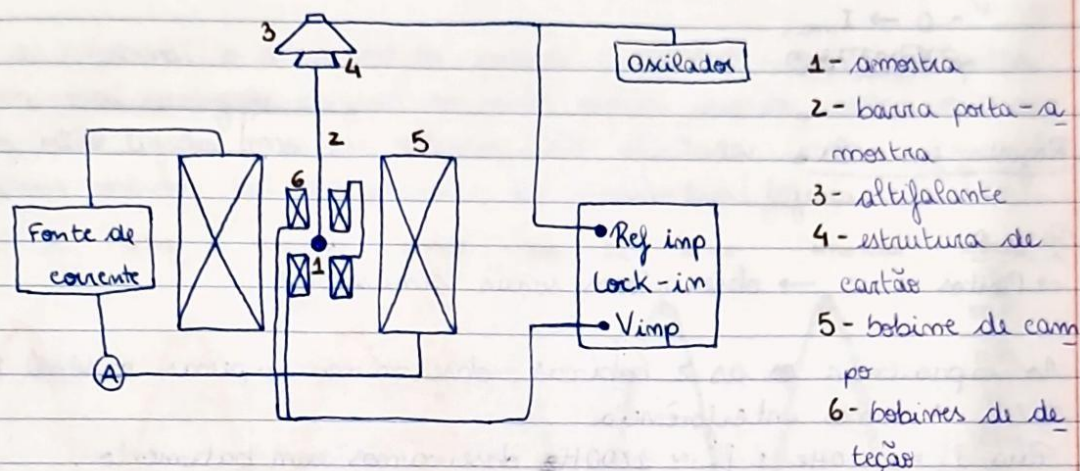 3
4
Oscilador
2
5
6
1
Fonte de
corrente
A
Ref inp
Lock-in
Vimp
1 - amostra
2 - barra porta-a
mostra
3 - altifalante
4 - estrutura de
cartão
5 - bobine de cam
po
6 - bobines de de
teção